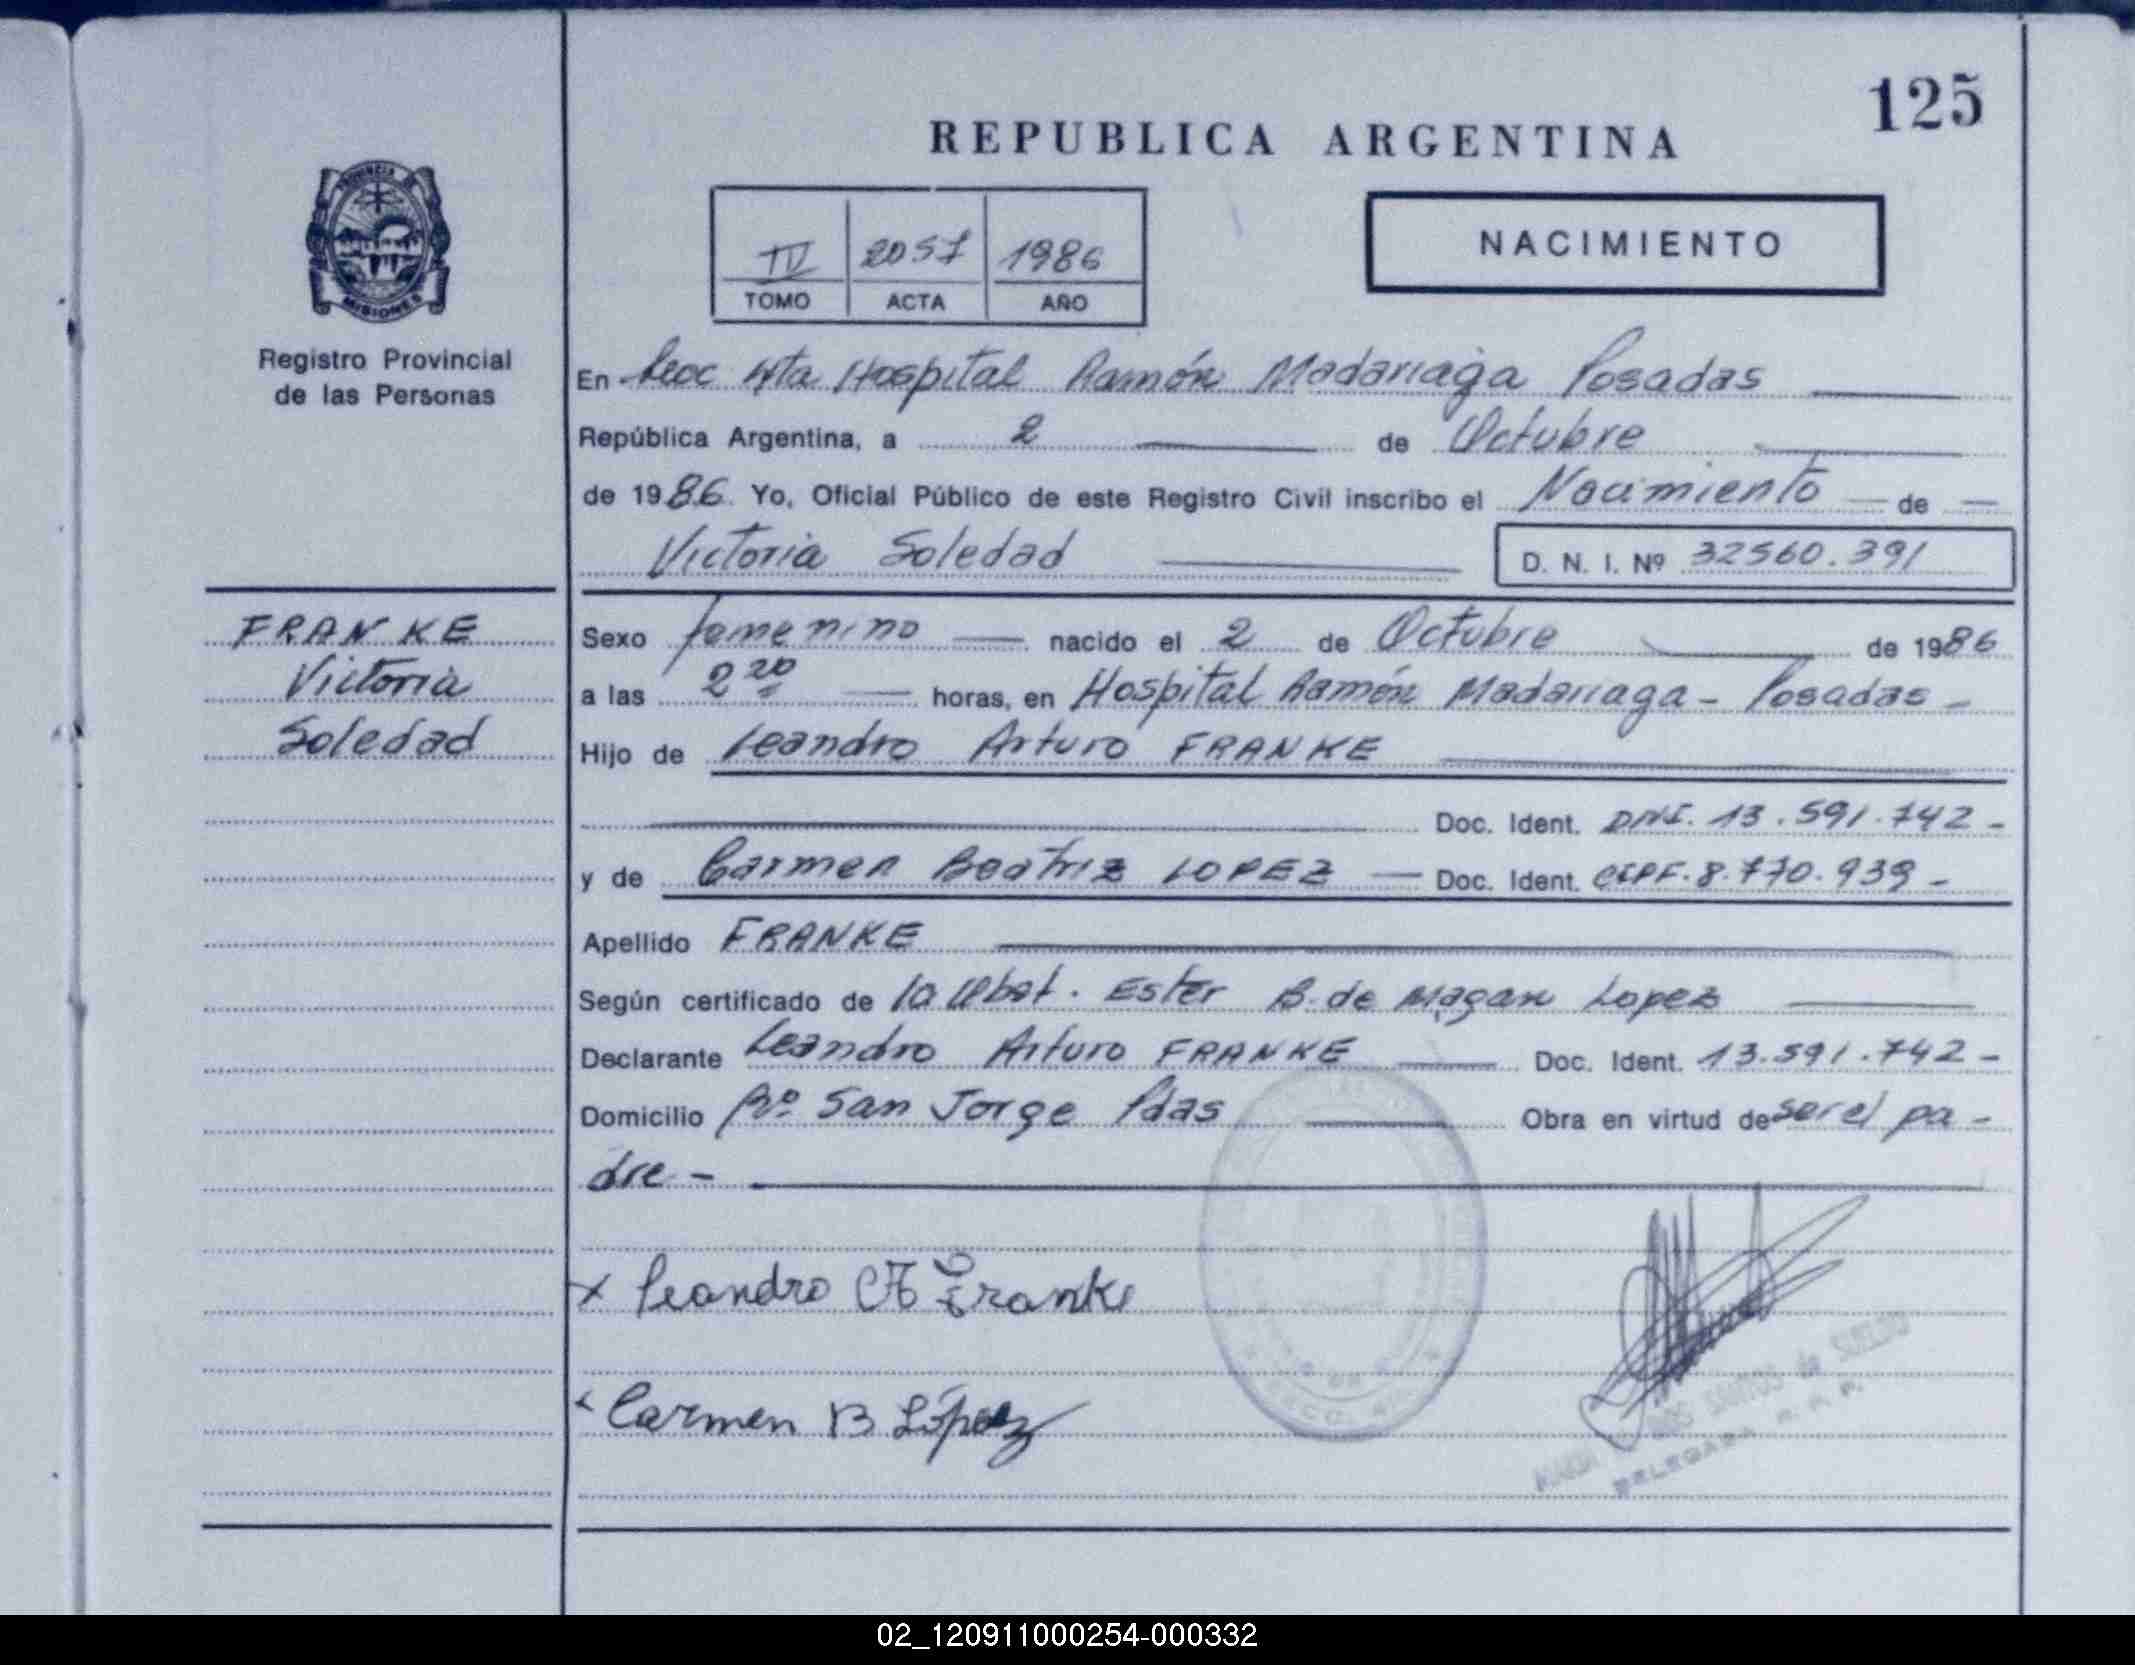 125
REPUBLICA ARGENTINA
PROVINCIA DE
MISIONES
IV 2057 1986
TOMO ACTA AÑO
NACIMIENTO
Registro Provincial
de las Personas
En Secc 4ta Hospital Ramón Madariaga Posadas
República Argentina, a 2 de Octubre
de 1986 Yo, Oficial Público de este Registro Civil inscribo el Nacimiento de
Victoria Soledad D. N. I. Nº 32560.391
FRANKE
Victoria
Soledad
Sexo femenino nacido el 2 de Octubre de 1986
a las 2 20 horas, en Hospital Ramón Madariaga - Posadas -
Hijo de Leandro Arturo FRANKE
Doc. Ident. DNI. 13.591.742 -
y de Carmen Beatriz LOPEZ Doc. Ident. CIPF. 8.770.939 -
Apellido FRANKE
Según certificado de la Obst. Ester B. de Magan Lopez
Declarante Leandro Arturo FRANKE Doc. Ident. 13.591.742 -
Domicilio Bº San Jorge Pdas Obra en virtud de ser el pa -
dre -
x Leandro A Franke
Carmen B López
SANTOS de
DELEGADA R. P. P.
02_120911000254-000332